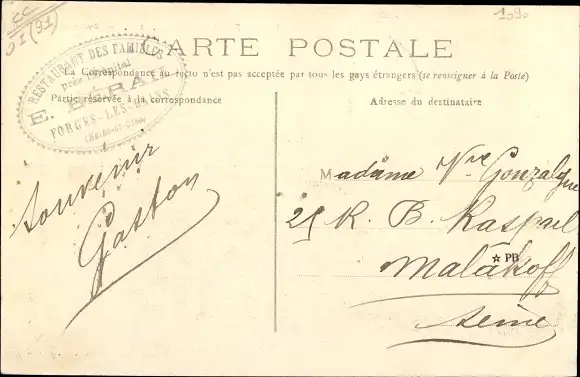 CC
01(91)
1090
CARTE POSTALE
La Correspondance au recto n'est pas acceptée par tous les pays étrangers (se renseigner à la Poste)
Partie réservée à la correspondance
Adresse du destinataire
RESTAURANT DES FAMILLES
près l'Hôpital
E.
FORGES-LES-BAINS
(Seine-et-Oise)
Souvenir
Gaston
Madame Vve Gonzalque
25 R. B. Raspail
☆ PB
Malakoff
Seine